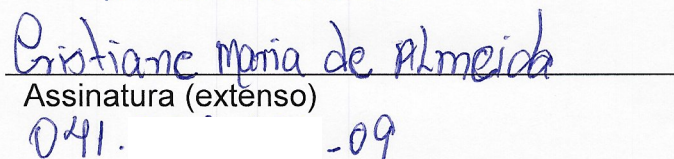 Cristiane Maria de Almeida
Assinatura (extenso)
041. -09